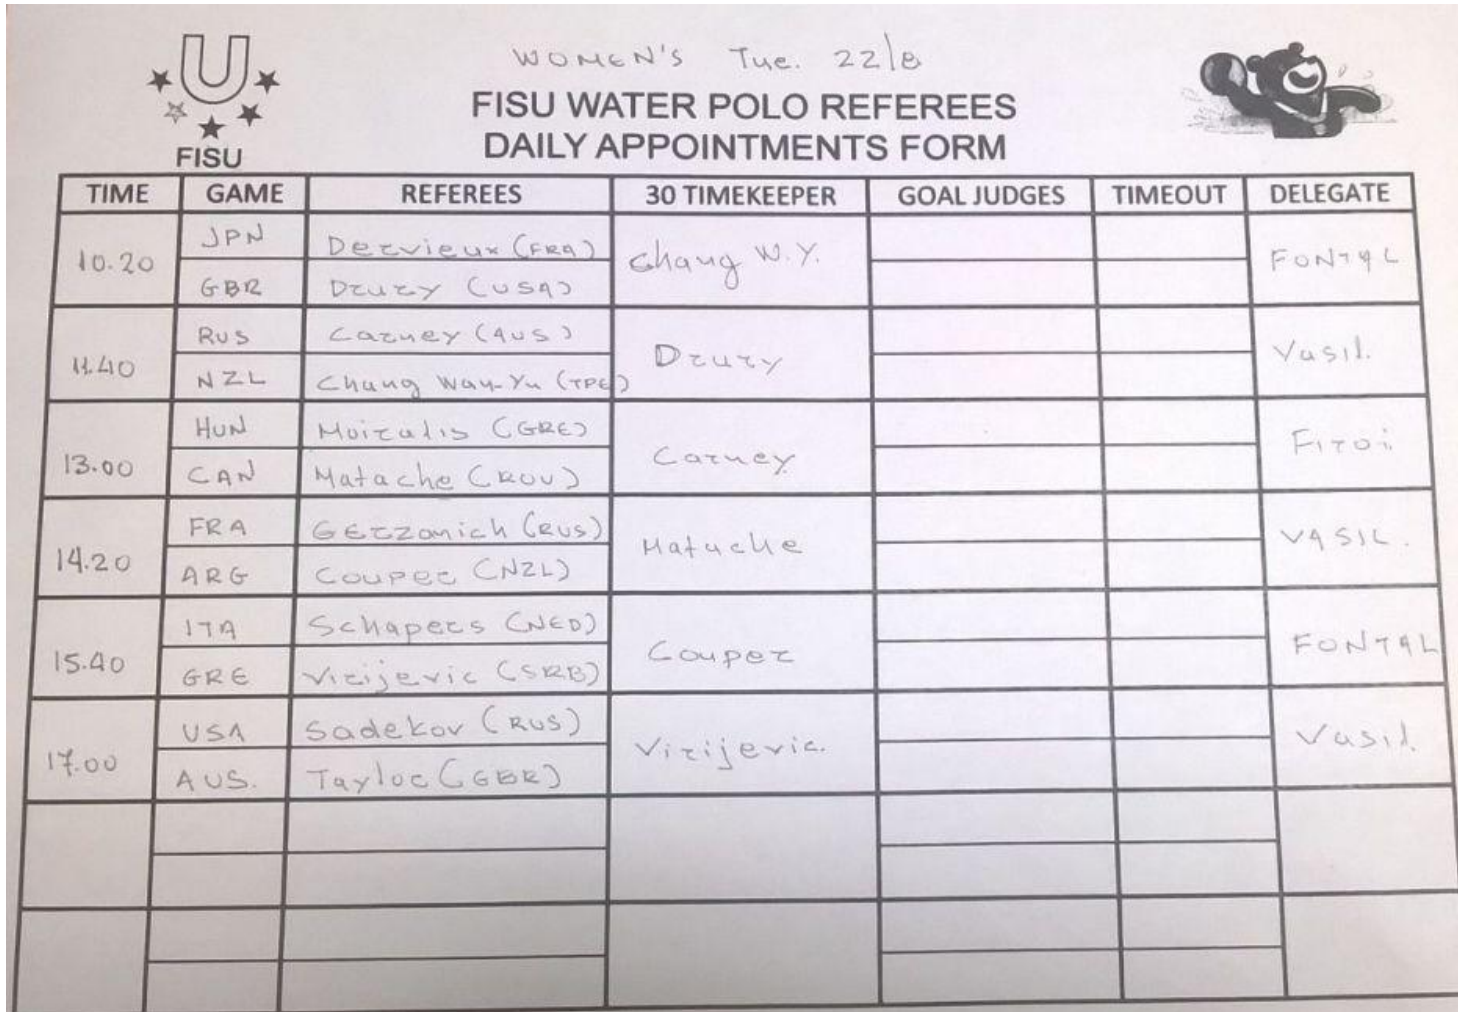 WOMEN'S Tue. 22/8
FISU WATER POLO REFEREES
DAILY APPOINTMENTS FORM
FISU
TIME GAME REFEREES 30 TIMEKEEPER GOAL JUDGES TIMEOUT DELEGATE
10.20 JPN Dervieux (FRA) Chang W.Y. FONTAL
GBR Drury (USA)
11.40 RUS Carney (AUS) Drury Vasil.
NZL Chang Way-Yu (TPE)
13.00 HUN Moiralis (GRE) Carney Firoi
CAN Matache (ROU)
14.20 FRA Gerzanich (RUS) Matache VASIL.
ARG Couper (NZL)
15.40 ITA Schapers (NED) Couper FONTAL
GRE Virijevic (SRB)
17.00 USA Sadekov (RUS) Virijevic. Vasil.
AUS. Taylor (GBR)